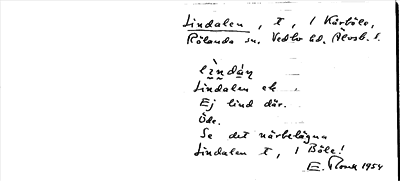 Lindalen, t, i Kärböle,
Rölanda sn. Vedbo hd. Älvsb. l.
lìndán
Lindalen ek.
Ej lind där.
Öde.
Se det närbelägna
Lindalen t, i Böle!
E. 1954